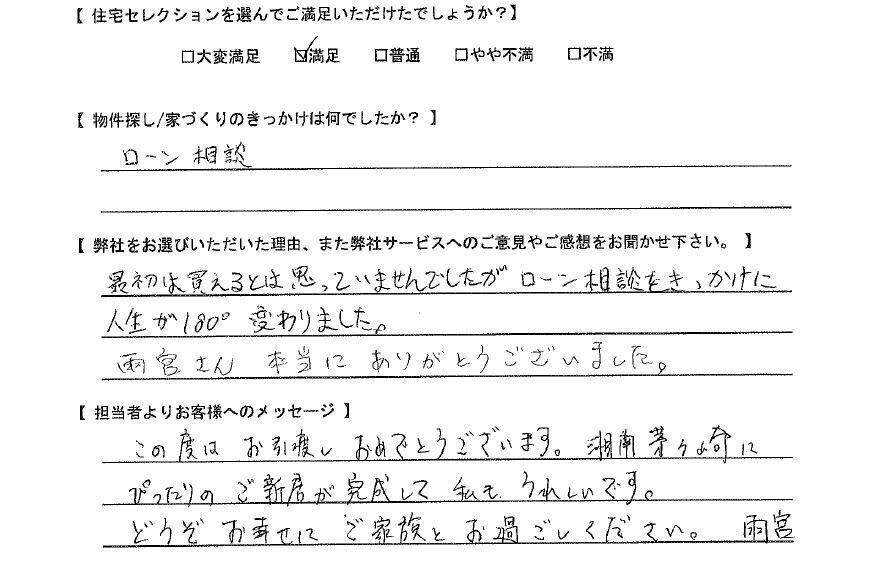 【 住宅セレクションを選んでご満足いただけたでしょうか？】
□大変満足 ☑満足 □普通 □やや不満 □不満
【 物件探し/家づくりのきっかけは何でしたか？ 】
ローン相談
【 弊社をお選びいただいた理由、また弊社サービスへのご意見やご感想をお聞かせ下さい。 】
最初は買えるとは思っていませんでしたが ローン相談をきっかけに
人生が180° 変わりました。
雨宮さん 本当に ありがとうございました。
【 担当者よりお客様へのメッセージ 】
この度は お引渡し おめでとうございます。湘南茅ヶ崎に
ぴったりの ご新居が完成して 私も うれしいです。
どうぞ お幸せに ご家族と お過ごしください。 雨宮